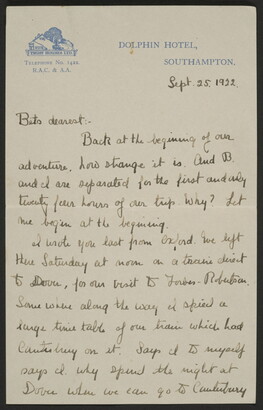 TRUST HOUSES LTD
TELEPHONE No. 1422.
R.A.C. & A.A.
DOLPHIN HOTEL,
SOUTHAMPTON.
Sept. 25. 1922.
Bets dearest:-
Back at the begining of our
adventure, how strange it is. And B.
and I are separated for the first and only
twenty four hours of our trip. Why? Let
me begin at the begining.
I wrote you last from Oxford. We left
there Saturday at noon on a train direct
to Dover, for our visit to Forbes-Robertson.
Some where along the way I spied a
large time table of our train which had
Canterbury on it. Says I to myself
says I why spend the night at
Dover when we can go to Canterbury